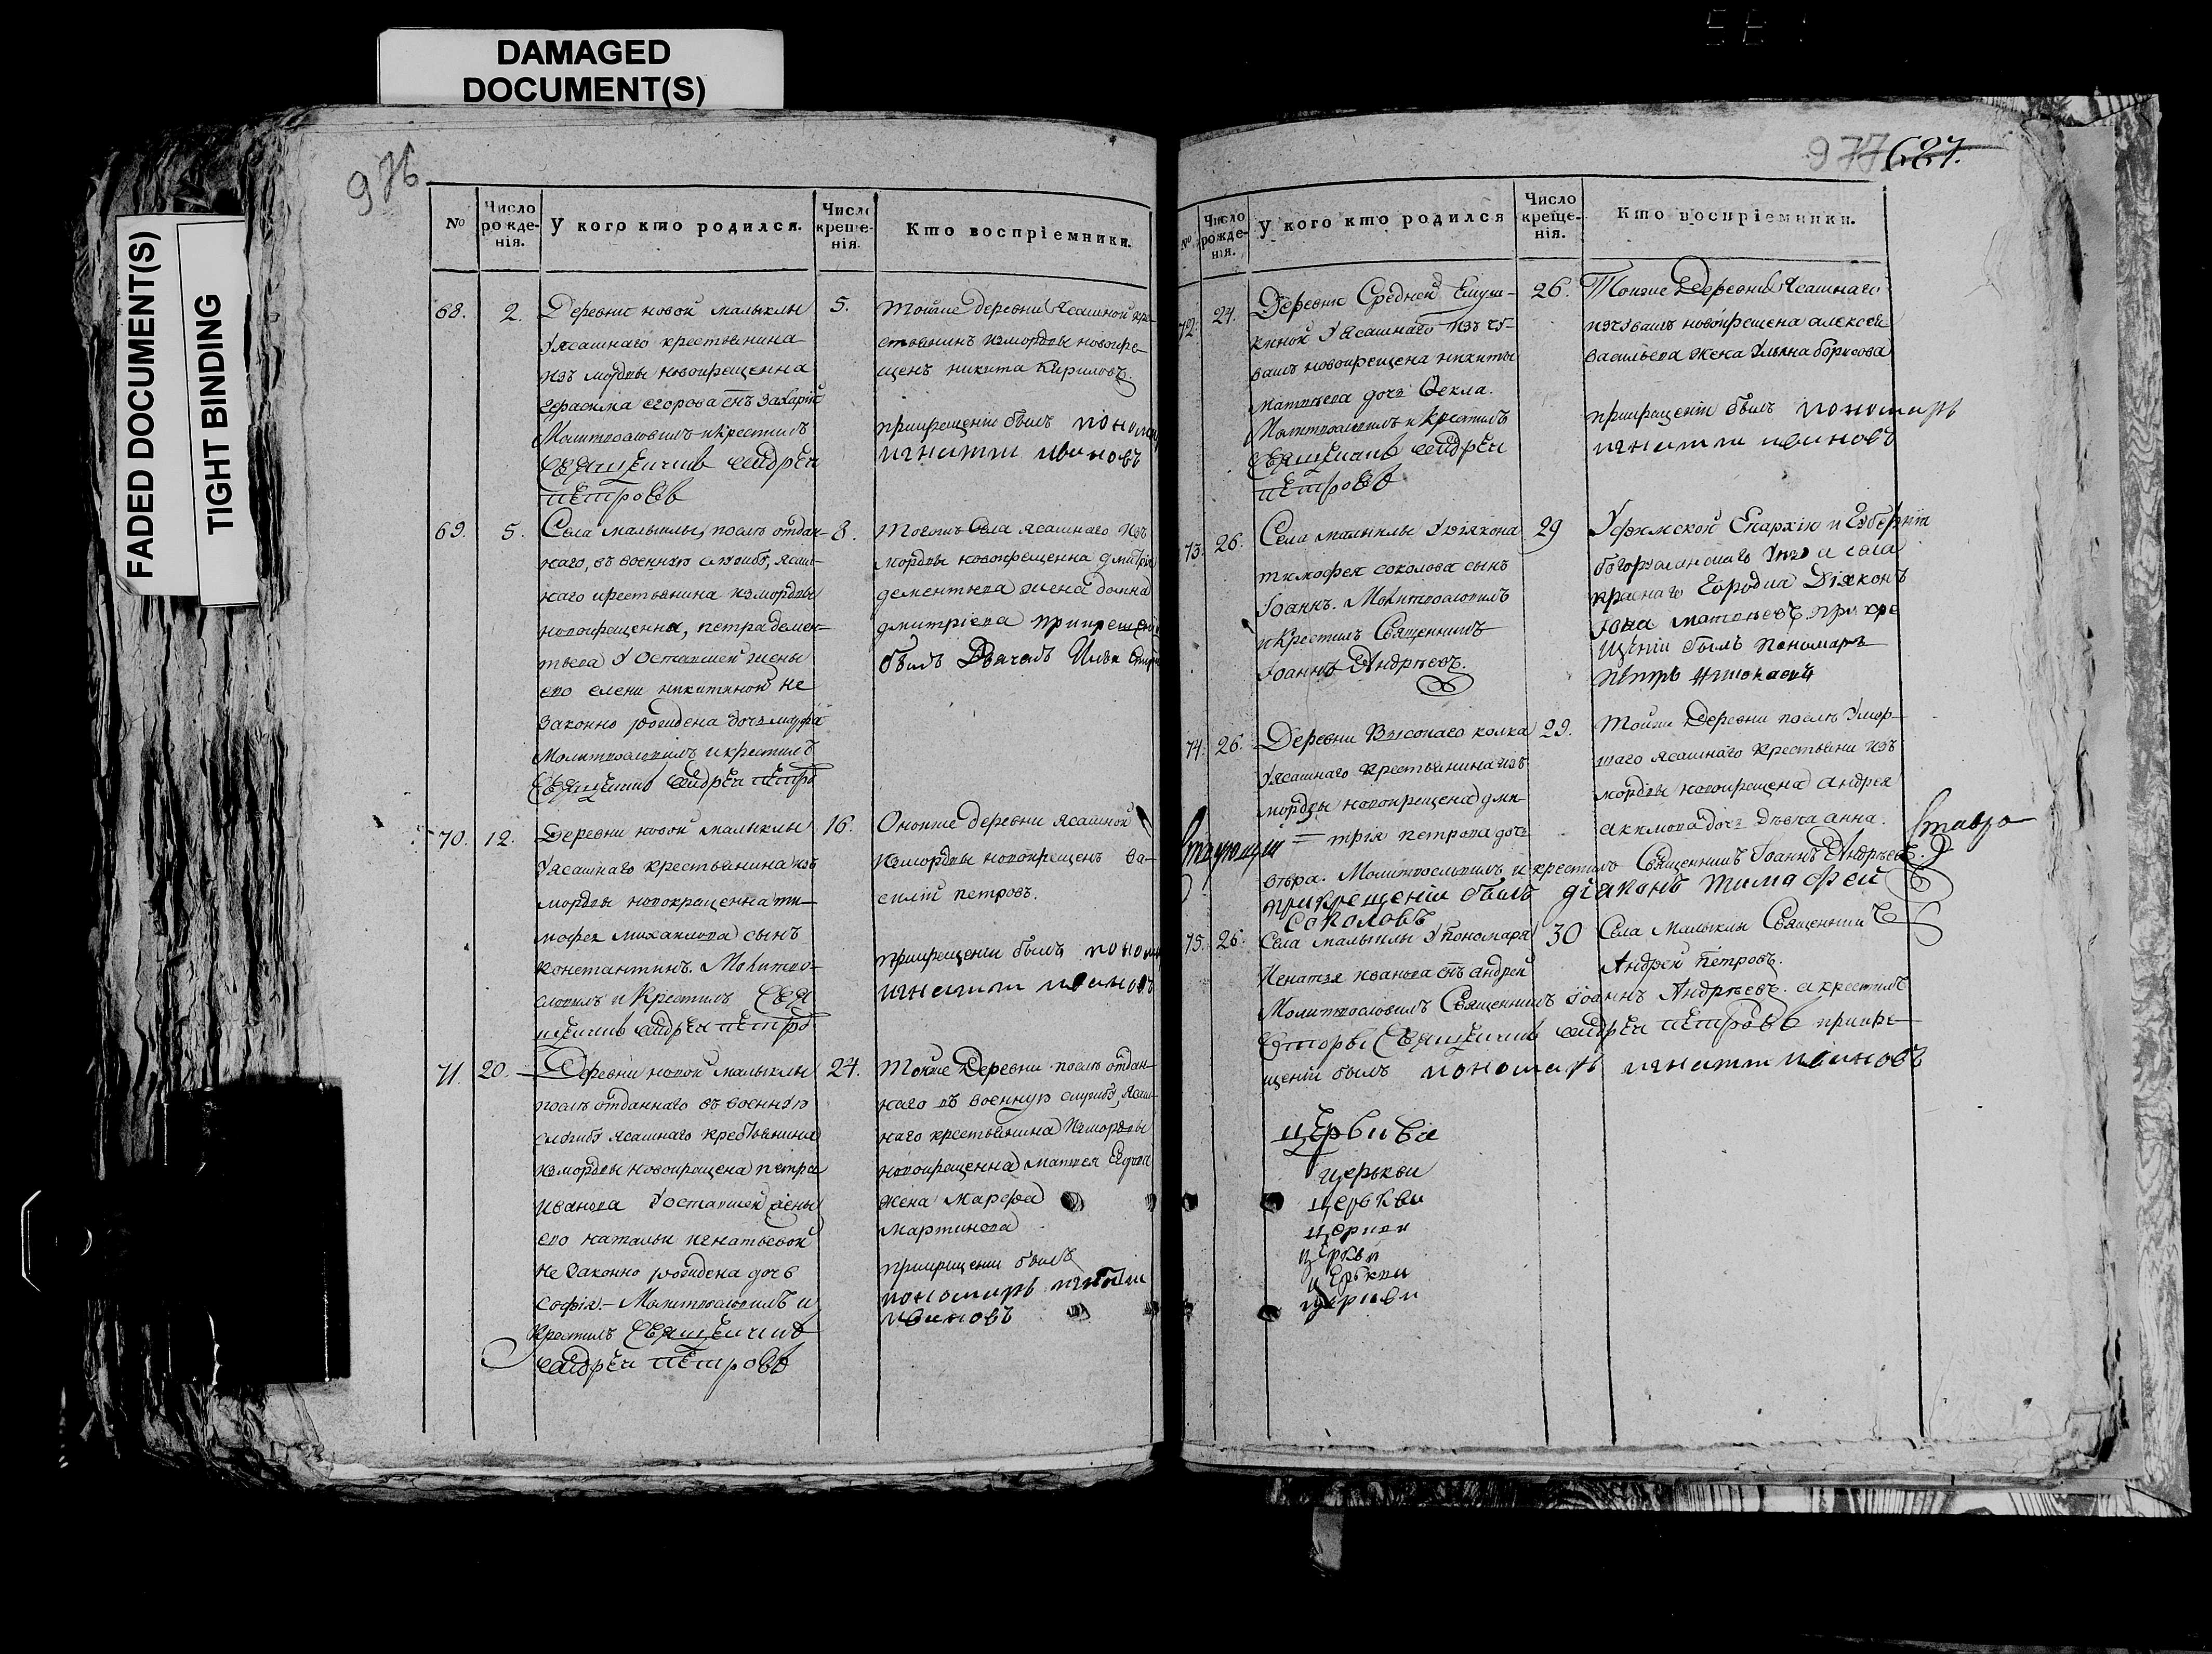 DAMAGED
DOCUMENT(S)
FADED DOCUMENT(S)
TIGHT BINDING
976
№
Число рожде-нія.
У кого кто родился.
Число креще-нія.
Кто воспріемники.
68.
2.
Деревни новой малыклы
У ясашнаго крестьянина
изъ мордвы новокрещенна
Герасима егорова снъ Захарій
Молитвословилъ и крестилъ
Священникъ андрей
петровъ
5.
Тойже деревни Ясашной кре-
стьянинъ измордвы новокре-
щенъ никита Кириловъ.
прикрещеніи былъ поном
игнатій ивановъ
69.
5.
Села малыклы, послѣ отдан-
наго, въ военную службу, ясаш-
наго крестьянина измордвы
новокрещенна, петра демен-
тьева У оставшей жены
его елены никитиной не
законно рождена дочь марфа
Молитвословилъ и крестилъ
Священникъ андрей петро
8.
Тогожъ Села ясашнаго изъ
мордвы новокрещенна дмитрія
дементьева жена домна
дмитріева прикрещеніи
былъ Дьячекъ Илья
70.
12.
Деревни новой малыклы
У ясашнаго крестьянина изъ
мордвы новокрещенна ти-
мофея михаилова сынъ
константинъ. Молитво-
словилъ и крестилъ Свя
щенникъ андрей петро
16.
Оноиже деревни ясашной
измордвы новокрещенъ ва-
силій петровъ.
прикрещеніи былъ поном
игнатій ивановъ
71.
20.
Деревни новой малыклы
послѣ отданнаго въ военную
службу ясашнаго крестьянина
измордвы новокрещена петра
иванова У оставшей жены
его натальи игнатьевой
не законно рождена дочь
софія. – Молитвословилъ и
крестилъ Священникъ
андрей петровъ
24.
Тойже Деревни послѣ отдан-
наго въ военную службу, ясаш-
наго крестьянина измордвы
новокрещенна матвея Егорова
жена Марефа
мартинова
прикрещеніи былъ
пономарь игнатій
ивановъ
977
687.
№
Число рожде-нія.
У кого кто родился
Число креще-нія.
Кто воспріемники.
72.
24.
Деревни Средней
киной У ясашнаго изъ чу-
вашъ новокрещена никиты
матвеева дочь Ѳекла.
Молитвословилъ и крестилъ
Священникъ андрей
петровъ
26.
Тоиже Деревни Ясашнаго
изчувашъ новокрещена алексея
васильева жена Ульяна борисова
прикрещеніи былъ пономарь
игнатій ивановъ
73.
26.
Села малыклы У діякона
тимофея соколова сынъ
Іоаннъ. Молитвословилъ
и Крестилъ Священникъ
Іоаннъ Андреевъ.
29
Уфимской Епархіи и Губерніи
бугорусланскаго села
краснаго Городка Діяконъ
Матвеевъ. При кре
щеніи былъ Пономарь
Петръ
74.
26.
Деревни Высокаго колка
У ясашнаго крестьянина изъ
мордвы новокрещена дми-
трія петрова дочь
Молитвословилъ и крестилъ Священникъ Іоаннъ Андреевъ.
прикрещеніи былъ діаконъ тимофей
соколовъ
29.
Тойже Деревни послѣ Умер-
шаго ясашнаго крестьяни изъ
мордвы новокрещена андрея
акимова дочь дѣвка анна.
Ставро
75.
26.
Села малыклы У пономаря
Игнатія иванова снъ андрей
30
Села Малыклы Священникъ
Андрей Петровъ.
Молитвословилъ Священникъ Іоаннъ Андреевъ. а крестилъ
Священникъ андрей петровъ прикре
щеніи былъ пономарь игнатій ивановъ
церкви
церькви
церькви
церкви
церкви
церькви
церкви